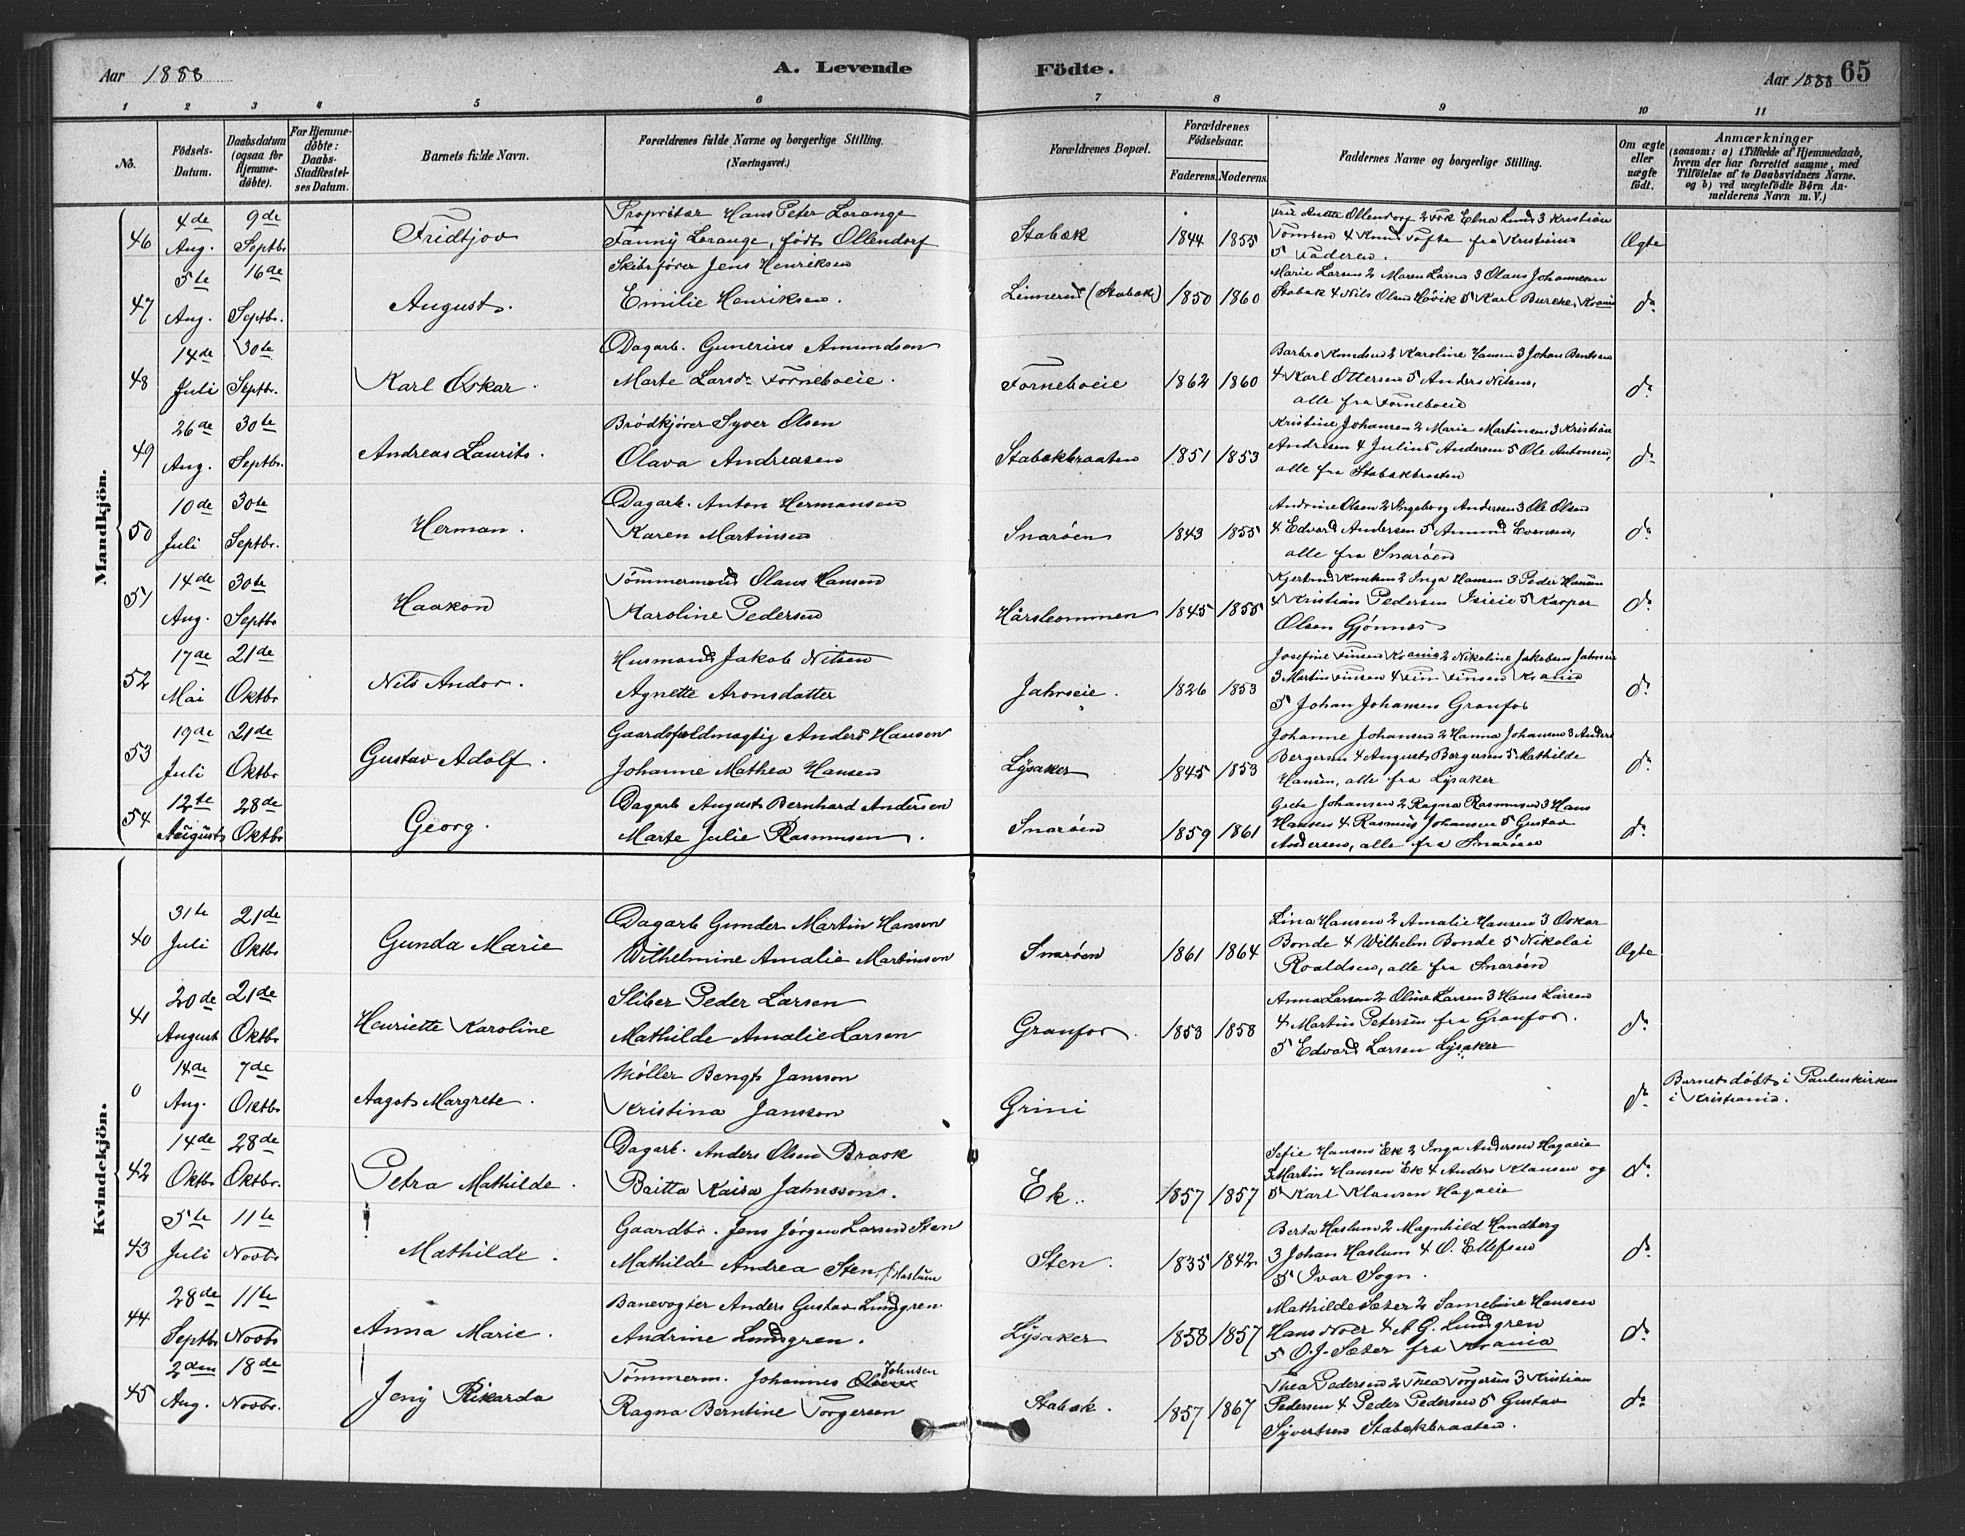 Aar 1888
A. Levende
Födte.
Aar 1888
65
1 2 3 4 5 6 7 8 9 10 11
No.
Födsels-Datum.
Daabsdatum (ogsaa for Hjemmedöbte).
For Hjemmedöbte: Daabs-Stadfæstelses Datum.
Barnets fulde Navn.
Forældrenes fulde Navne og borgerlige Stilling. (Næringsvei.)
Forældrenes Bopæl.
Forældrenes Födselsaar.
Faderens. Moderens.
Faddernes Navne og borgerlige Stilling.
Om ægte eller uægte født.
Anmærkninger
(saasom: a) i Tilfælde af Hjemmedaab, hvem der har forrettet samme, med Tilføielse af to Daabsvidners Navne. og b) ved uægtefödte Börn Anmelderens Navn m. V.)
Mandkjön.
46 4de Aug. 9de Septbr Fridtjov
Proprietær Hans Peter Lorange
Fanny Lorange, født Ollendorf
Stabæk 1844 1855
Anette Ollendorf 2 Frk Elna Lund 3 Kristian
Tomsen 4 Knud Tofte fra Kristiania
5 Faderen.
Ægte
47 5te Aug. 16de Septbr. August.
Skibsfører Jens Henriksen
Emilie Henriksen.
Linnerud (Stabæk) 1850 1860
Marie Larsen 2 Maren Larsen 3 Olaus Johannesen
Stabæk 4 Nils Olsen Høvik 5 Karl Burche, Krania
do
48 14de Juli 30te Septbr. Karl Oskar.
Dagarb. Gunerius Amundsen
Marte Larsdr Forneboeie.
Forneboeie 1862 1860
Barbro Knudsen 2 Karoline Hansen 3 Johan Bentsen
4 Karl Ottersen 5 Anders Nilsen,
alle fra Forneboeie
do
49 26de Aug. 30te Septbr. Andreas Laurits.
Brødkjører Syver Olsen
Olava Andreasen
Stabækbraaten 1851 1853
Kristine Johansen 2 Marie Martinsen 3 Kristian
Andresen 4 Julius Andersen 5 Ole Antonsen,
alle fra Stabækbraaten
do
50 10de Juli 30te Septbr. Herman.
Dagarb. Anton Hermansen
Karen Martinsen
Snarøen 1843 1855
Andrine Olsen 2 Ingeborg Andersen 3 Ole Olsen
4 Edvard Andersen 5 Amund Evensen,
alle fra Snarøen
do
51 14de Aug. 30te Septbr Haakon
Tømmermand Olaus Hansen
Karoline Pedersen
Hårslommen 1845 1855
Kjerstin Knutsen 2 Inga Hansen 3 Peder Hansen
4 Kristian Pedersen 5 Kasper
Olsen Gjønnes
do
52 17de Mai 21de Oktbr Nils Andor.
Husmand Jakob Nilsen
Agnette Aronsdatter
Jahrseie. 1826 1853
Josefine Finsen Krania 2 Nikoline Jakobsen Jahrseie
3 Martin Finsen 4 Finsen Krania
5 Johan Johansen Granfos
do
53 19de Juli 21de Oktbr Gustav Adolf.
Gaardsfuldmægtig Anders Hansen
Johanne Mathea Hansen
Lysaker 1845 1853
Johanne Johansen 2 Hanna Johansen 3 Anders
Bergersen 4 August Bergersen 5 Mathilde
Hansen, alle fra Lysaker
do
54 12te August 28de Oktbr Georg.
Dagarb August Bernhard Andersen
Marte Julie Rasmusen.
Snarøen 1859 1861
Grete Johansen 2 Ragna Rasmusen 3 Hans
Hansen 4 Rasmus Johansen 5 Gustav
Andersen, alle fra Snarøen
do
Kvindekjön.
40 31te Juli 21de Oktbr Gunda Marie
Dagarb Gunder Martin Hansen
Wilhelmine Amalie Martinsen
Snarøen 1861 1864
Lina Hansen 2 Amalie Hansen 3 Oskar
Bonde 4 Wilhelm Bonde 5 Nikolai
Roaldsen, alle fra Snarøen
Ægte
41 20de August 21de Oktbr Henriette Karoline
Sliber Peder Larsen
Mathilde Amalie Larsen
Granfos. 1853 1858
Anna Larsen 2 Oline Larsen 3 Hans Larsen
4 Martin Petersen fra Granfos.
5 Edvard Larsen Lysaker
do
0 14de Aug. 7de Oktbr Aagot Margrete.
Møller Bengt Jansson
Kristina Jansson
Grini
do
Barnet døbt i Pauluskirken
i Kristiania.
42 14de Oktbr 28de Oktbr. Petra Mathilde.
Dagarb. Anders Olsen Braak
Britta Kaisa Jahnsson.
Ek. 1857 1857
Sofie Hansen Ek 2 Inga Andersen Hagaeie
3 Martin Hansen Ek 4 Anders Klausen og
5 Karl Klausen Hagaeie
do
43 5te Juli 11te Novbr Mathilde.
Gaardbr. Jens Jørgen Larsen Sten
Mathilde Andrea Sten, f Haslum
Sten. 1835 1842
Berta Haslum 2 Magnhild Handberg
3 Johan Haslum 4 O. Ellefsen
5 Ivar Sogn.
do
44 28de Septbr 11te Novbr Anna Marie.
Banevogter Anders Gustav Lundgren
Andrine Lundgren.
Lysaker 1858 1857
Mathilde Sæter 2 Hansen
Hans Noer 4 A G. Lundgren
5 O. J. Sæter fra Krania
do
45 2den Aug. 18de Novbr. Jeny Rikarda
Tømmerm. Johannes Johnsen
Ragna Berntine Torgersen
Stabæk. 1857 1867
Thea Pedersen 2 Thea Torgersen 3 Kristian
Pedersen 4 Peder Pedersen 5 Gustav
Syvertsen Stabækbraaten.
do